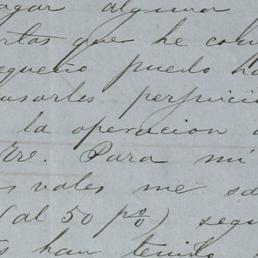 pagar alguna
rtas que he com
equeño pueblo ha
usarles perjuici
la operacion
rre. Para mi
s vales me sa
(al 50 p%) segu
s han tenido